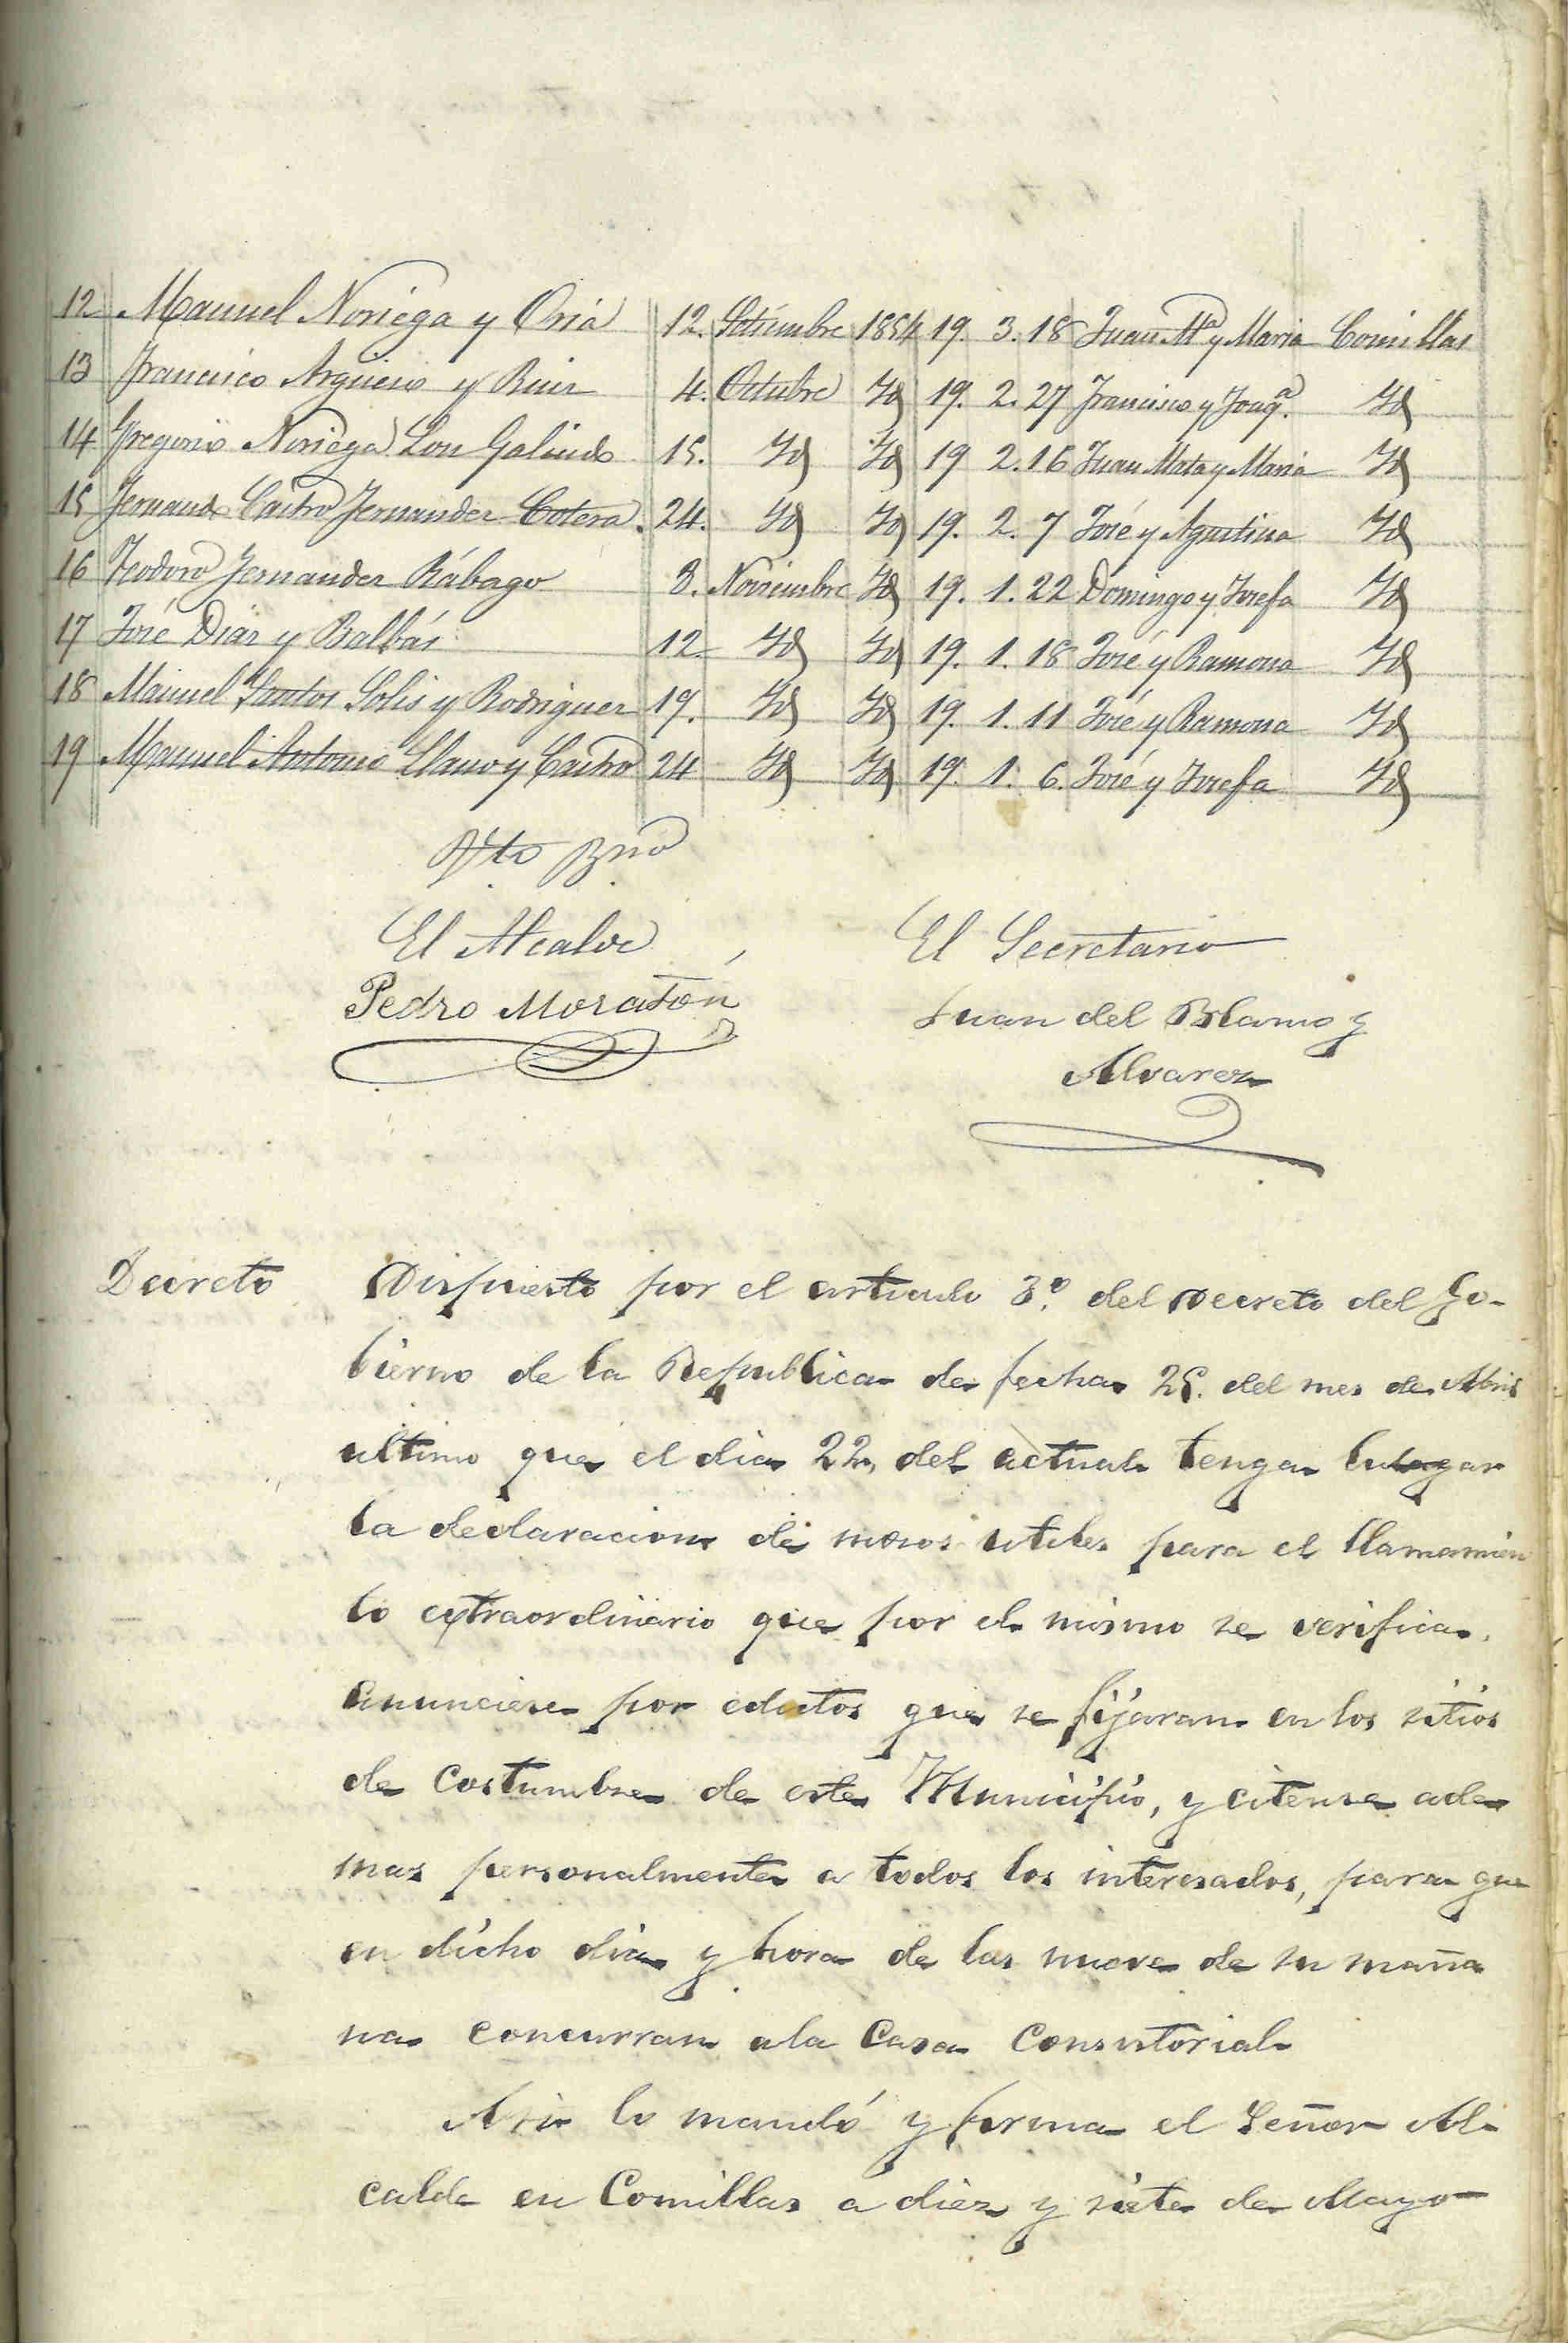 12 Manuel Noriega y Oria 12. Setiembre 1854 19. 3. 18 Juan Mª y Maria Comillas
13 Francisco Argüeso y Ruiz 4. Octubre Id 19. 2. 27 Francisco y Joaqª. Id
14 Gregorio Noriega Lon Galindo 15. Id Id 19 2. 16 Juan Mata y Maria Id
15 Fernando Castro Fernandez Cotera. 24. Id Id 19. 2. 7 José y Agustina Id
16 Teodoro Fernandez Rábago 8. Noviembre Id 19. 1. 22 Domingo y Josefa Id
17 José Diaz y Balbás 12. Id Id 19. 1. 18 José y Ramona Id
18 Manuel Santos Solis y Rodriguez 19. Id Id 19. 1. 11 José y Ramona Id
19 Manuel Antonio Llano y Castro 24 Id Id 19. 1. 6. José y Josefa Id
Vto Bno
El Alcalde El Secretario
Pedro Moratón Juan del Blamo y
Alvarez
Decreto Dispuesto por el articulo 3º. del Decreto del Go-
bierno de la Republica de fecha 25. del mes de Abril
ultimo que el dia 22, del actual tenga lugar
la declaracion de mosos utiles para el llamamien
to extraordinario que por el mismo se verifica,
anunciese por edictos que se fijaran en los sitios
de costumbre de este Municipio, y citense ade
mas personalmente a todos los interesados, para que
en dicho dia y hora de las nueve de su maña
na concurran a la Casa Consistorial
Asi lo mandó y firma el Señor Al-
calde en Comillas a diez y siete de Mayo